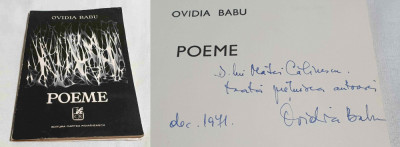 OVIDIA BABU
POEME
EDITURA CARTEA ROMÂNEASCĂ
OVIDIA BABU
POEME
D-lui Matei Călinescu,
toată prețuirea autoarei
Ovidia Babu
dec. 1971.